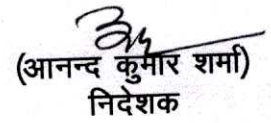 (आनन्द कुमार शर्मा)
निदेशक